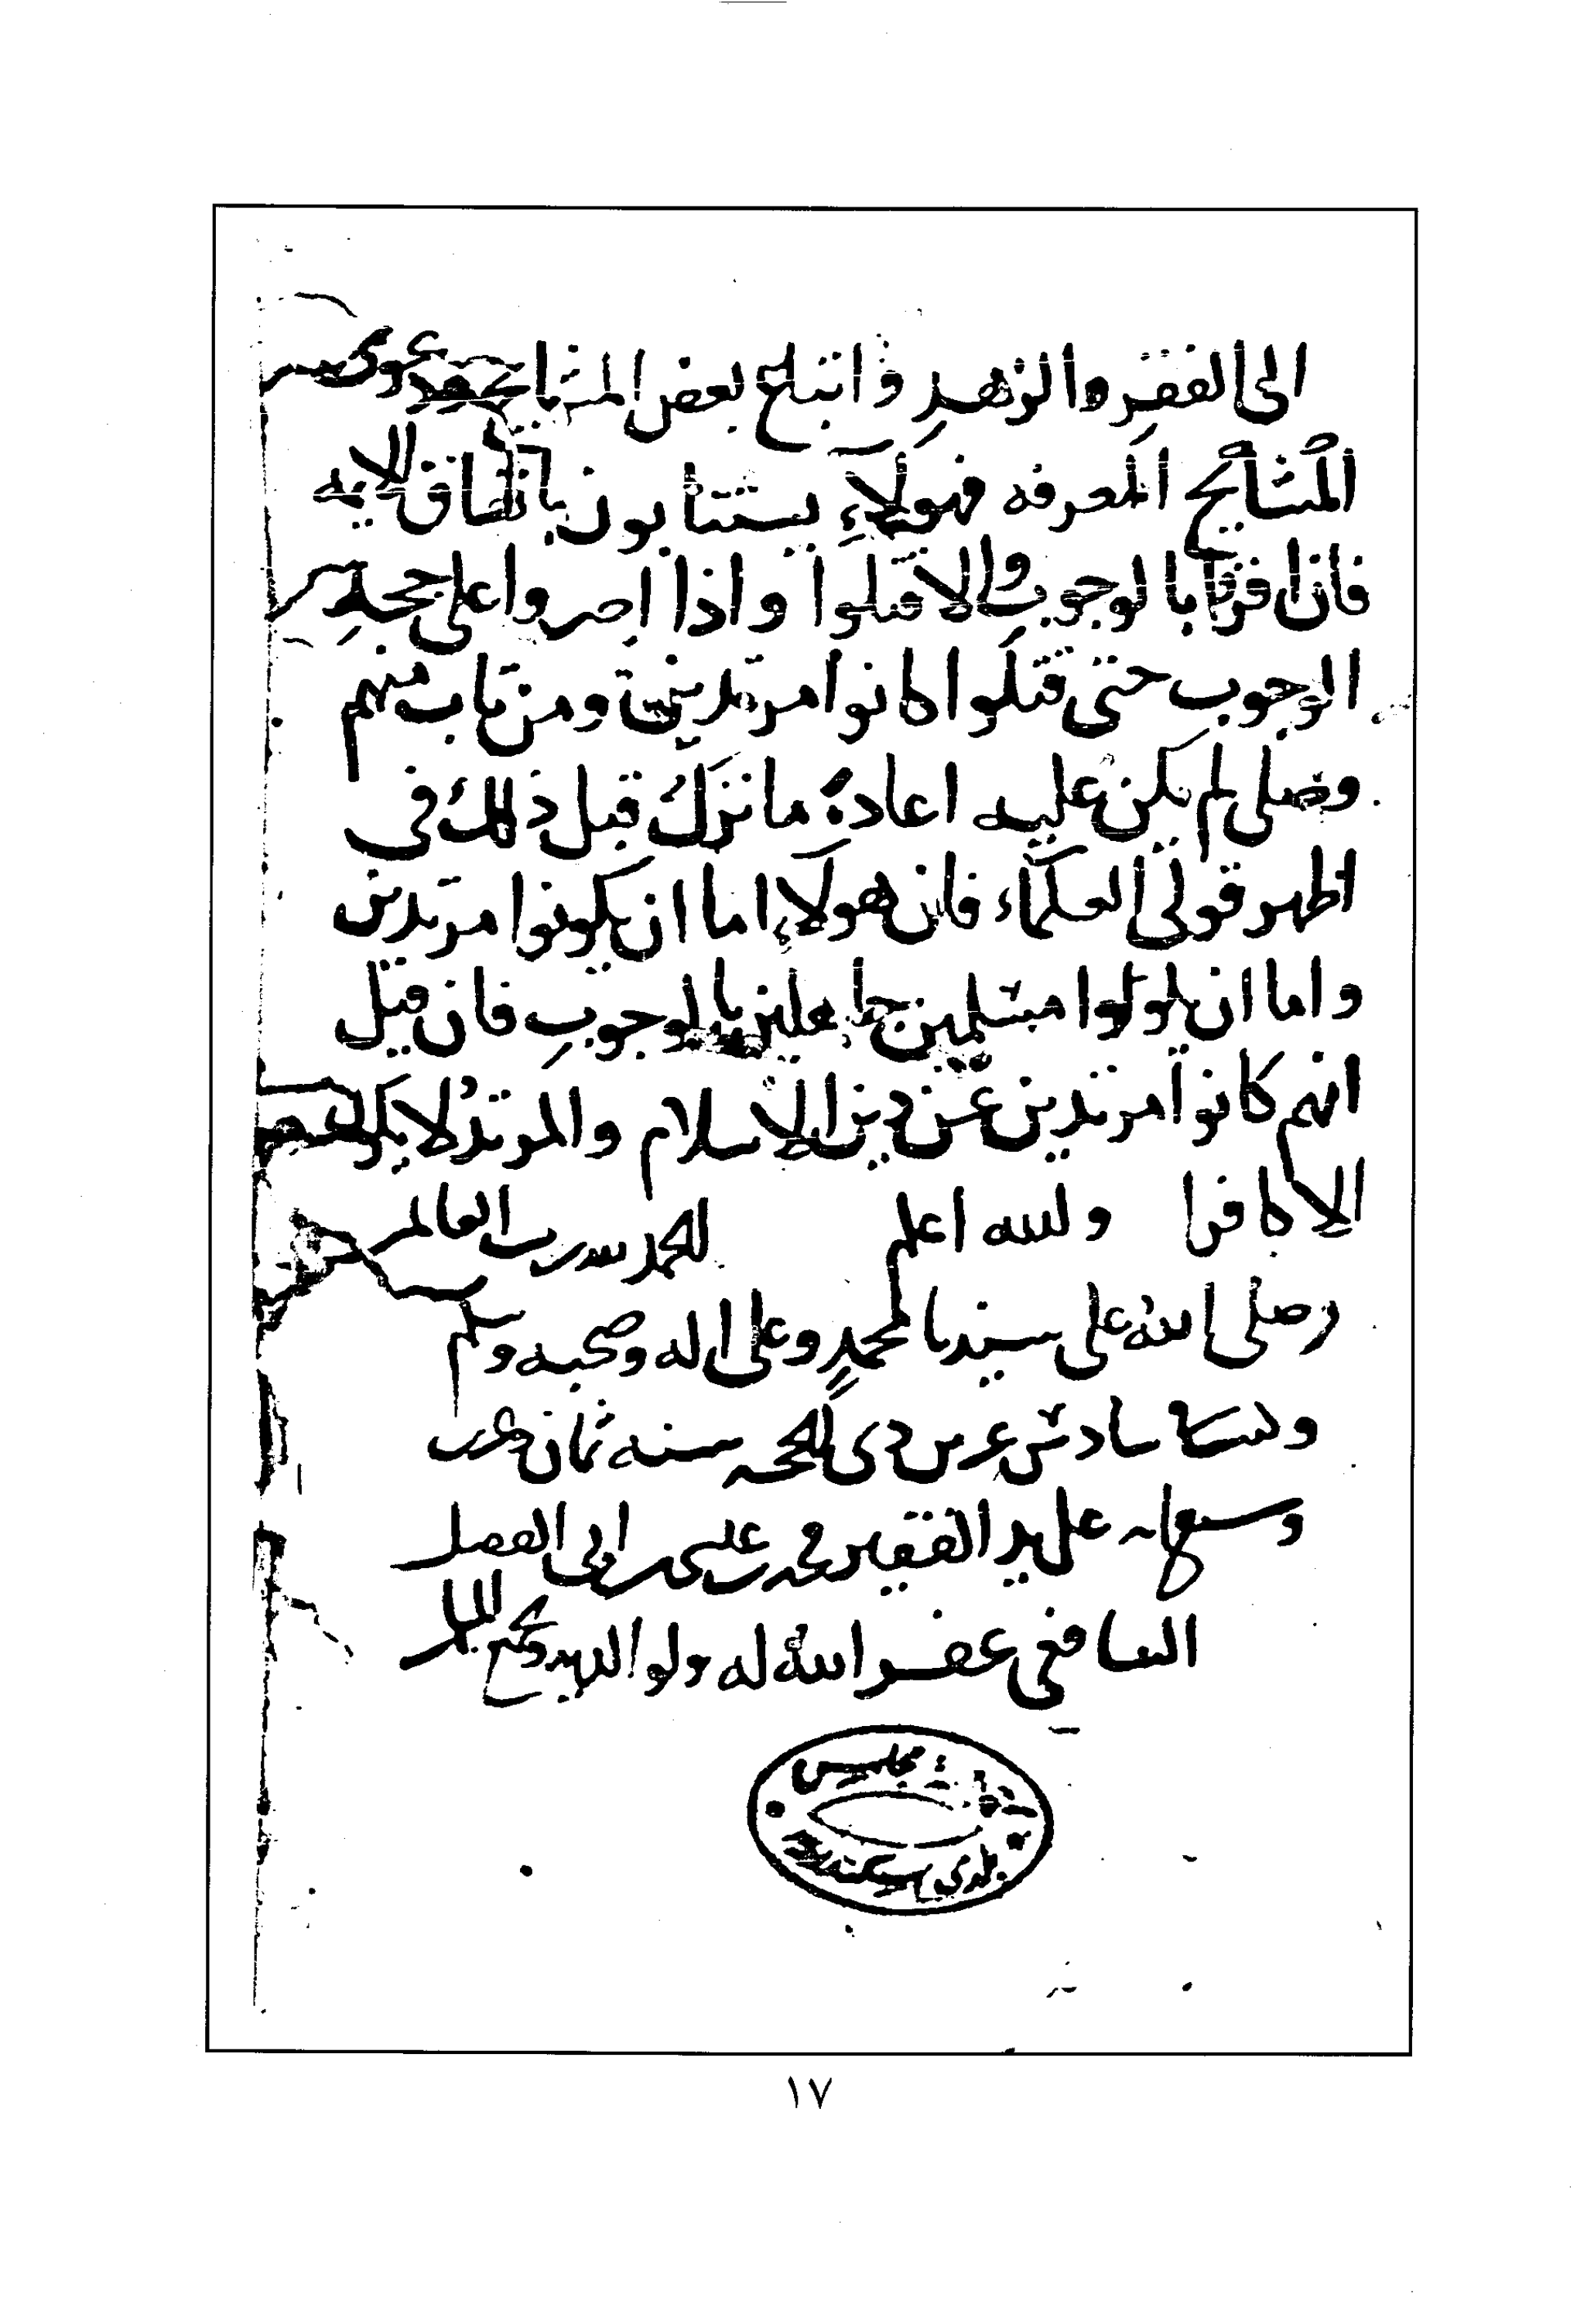 الى الفقر والزهد واتباع بعض المشايخ
المشايخ المعرفه فهولاء يستتابون باتفاق الايمه
فان اقروا بالوجوب والا قتلوا واذا اصروا على جحد
الوجوب حتى قتلوا كانوا مرتدين ومن تاب منهم
وصلى لم يكن عليه اعادة ما ترك قبل ذلك في
اظهر قولى العلماء فان هولاء اما ان يكونوا مرتدين
واما ان يكونوا مسلمين جاهلين بالوجوب فان قيل
انهم كانوا مرتدين عن دين الاسلام والمرتد لا يكون
الا كافرا والله اعلم الحمد لله رب العالمين
وصلى الله على سيدنا محمد وعلى اله وصحبه وسلم
سادس عشر ذي الحجه سنه ثمان
وسبعمايه على يد الفقير ابي الفضل
الشافعي غفر الله له ولوالديه ولجميع المسلمين
مجلس
بلدي اسكندرية
١٧